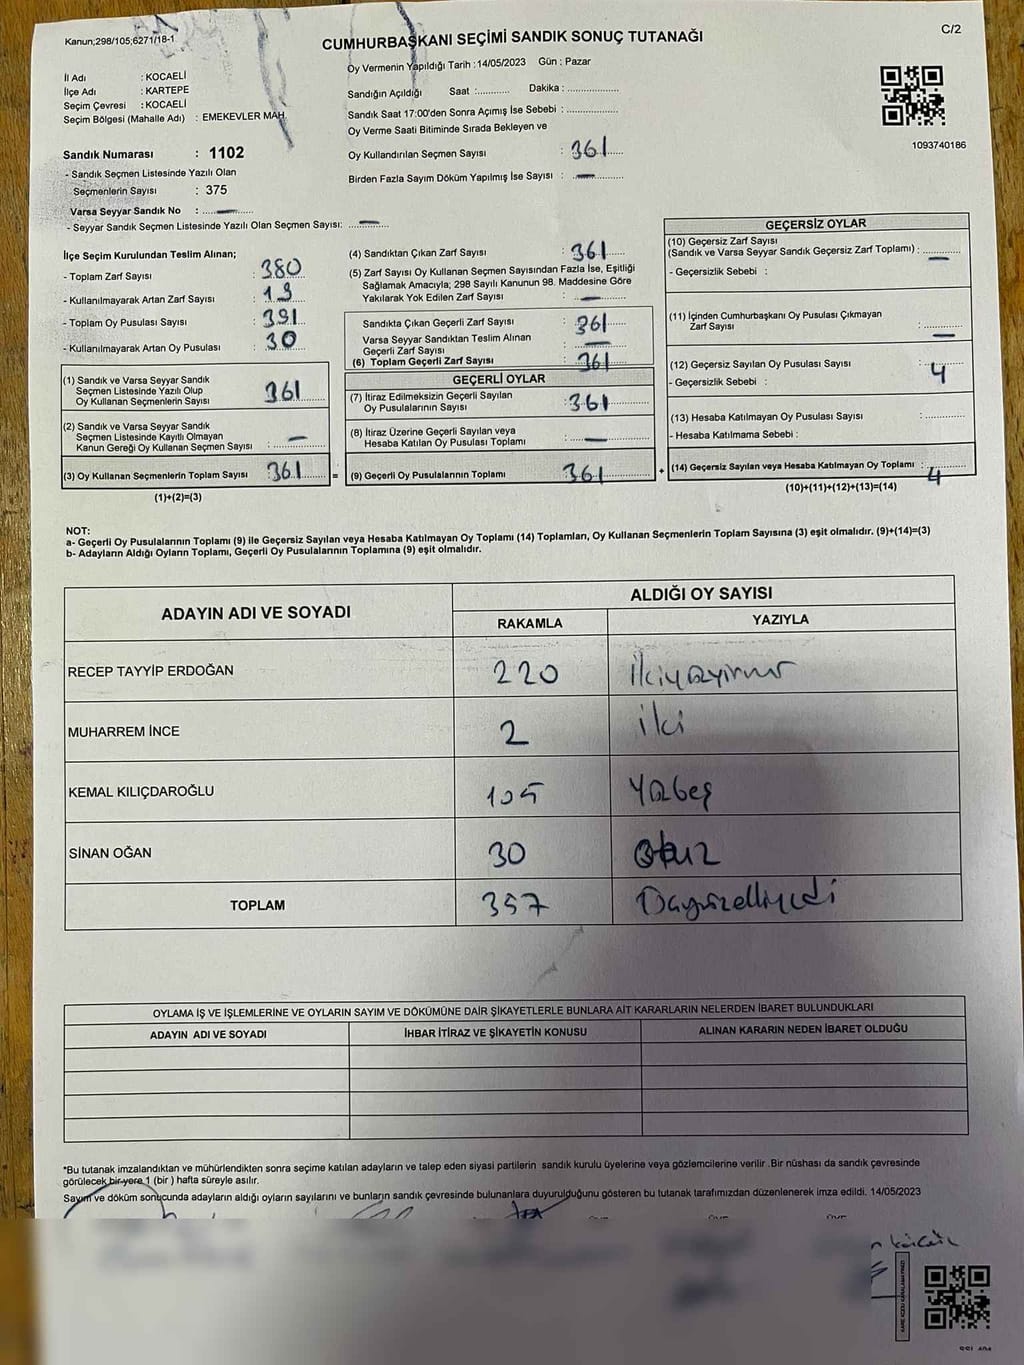 Kanun;298/105;6271/18-1
CUMHURBAŞKANI SEÇİMİ SANDIK SONUÇ TUTANAĞI
C/2
İl Adı : KOCAELİ
İlçe Adı : KARTEPE
Seçim Çevresi : KOCAELİ
Seçim Bölgesi (Mahalle Adı) : EMEKEVLER MAH.
Sandık Numarası : 1102
- Sandık Seçmen Listesinde Yazılı Olan
Seçmenlerin Sayısı : 375
Varsa Seyyar Sandık No : —
- Seyyar Sandık Seçmen Listesinde Yazılı Olan Seçmen Sayısı: —
Oy Vermenin Yapıldığı Tarih : 14/05/2023 Gün : Pazar
Sandığın Açıldığı Saat :........... Dakika : .....................
Sandık Saat 17:00'den Sonra Açımış İse Sebebi : .....................
Oy Verme Saati Bitiminde Sırada Bekleyen ve
Oy Kullandırılan Seçmen Sayısı : 361
Birden Fazla Sayım Döküm Yapılmış İse Sayısı : —
1093740186
İlçe Seçim Kurulundan Teslim Alınan;
- Toplam Zarf Sayısı : 380
- Kullanılmayarak Artan Zarf Sayısı : 19
- Toplam Oy Pusulası Sayısı : 391
- Kullanılmayarak Artan Oy Pusulası : 30
(1) Sandık ve Varsa Seyyar Sandık
Seçmen Listesinde Yazılı Olup
Oy Kullanan Seçmenlerin Sayısı : 361
(2) Sandık ve Varsa Seyyar Sandık
Seçmen Listesinde Kayıtlı Olmayan
Kanun Gereği Oy Kullanan Seçmen Sayısı : —
(3) Oy Kullanan Seçmenlerin Toplam Sayısı : 361
(1)+(2)=(3)
=
(4) Sandıktan Çıkan Zarf Sayısı : 361
(5) Zarf Sayısı Oy Kullanan Seçmen Sayısından Fazla İse, Eşitliği
Sağlamak Amacıyla; 298 Sayılı Kanunun 98. Maddesine Göre
Yakılarak Yok Edilen Zarf Sayısı : —
Sandıkta Çıkan Geçerli Zarf Sayısı : 361
Varsa Seyyar Sandıktan Teslim Alınan
Geçerli Zarf Sayısı : —
(6) Toplam Geçerli Zarf Sayısı : 361
GEÇERLİ OYLAR
(7) İtiraz Edilmeksizin Geçerli Sayılan
Oy Pusulalarının Sayısı : 361
(8) İtiraz Üzerine Geçerli Sayılan veya
Hesaba Katılan Oy Pusulası Toplamı : —
(9) Geçerli Oy Pusulalarının Toplamı : 361
+
GEÇERSİZ OYLAR
(10) Geçersiz Zarf Sayısı
(Sandık ve Varsa Seyyar Sandık Geçersiz Zarf Toplamı) : —
- Geçersizlik Sebebi :
(11) İçinden Cumhurbaşkanı Oy Pusulası Çıkmayan
Zarf Sayısı : —
(12) Geçersiz Sayılan Oy Pusulası Sayısı : 4
- Geçersizlik Sebebi :
(13) Hesaba Katılmayan Oy Pusulası Sayısı : ............
- Hesaba Katılmama Sebebi :
(14) Geçersiz Sayılan veya Hesaba Katılmayan Oy Toplamı : 4
(10)+(11)+(12)+(13)=(14)
NOT:
a- Geçerli Oy Pusulalarının Toplamı (9) ile Geçersiz Sayılan veya Hesaba Katılmayan Oy Toplamı (14) Toplamları, Oy Kullanan Seçmenlerin Toplam Sayısına (3) eşit olmalıdır. (9)+(14)=(3)
b- Adayların Aldığı Oyların Toplamı, Geçerli Oy Pusulalarının Toplamına (9) eşit olmalıdır.
ADAYIN ADI VE SOYADI
ALDIĞI OY SAYISI
RAKAMLA YAZIYLA
RECEP TAYYİP ERDOĞAN 220 ikiyüzyirmi
MUHARREM İNCE 2 iki
KEMAL KILIÇDAROĞLU 105 Yüzbeş
SİNAN OĞAN 30 Otuz
TOPLAM 357
OYLAMA İŞ VE İŞLEMLERİNE VE OYLARIN SAYIM VE DÖKÜMÜNE DAİR ŞİKAYETLERLE BUNLARA AİT KARARLARIN NELERDEN İBARET BULUNDUKLARI
ADAYIN ADI VE SOYADI İHBAR İTİRAZ VE ŞİKAYETİN KONUSU ALINAN KARARIN NEDEN İBARET OLDUĞU
*Bu tutanak imzalandıktan ve mühürlendikten sonra seçime katılan adayların ve talep eden siyasi partilerin sandık kurulu üyelerine veya gözlemcilerine verilir .Bir nüshası da sandık çevresinde
görülecek bir yere 1 (bir ) hafta süreyle asılır.
Sayım ve döküm sonucunda adayların aldığı oyların sayılarını ve bunların sandık çevresinde bulunanlara duyurulduğunu gösteren bu tutanak tarafımızdan düzenlenerek imza edildi. 14/05/2023
KARE KODU KARALAMAYINIZ!